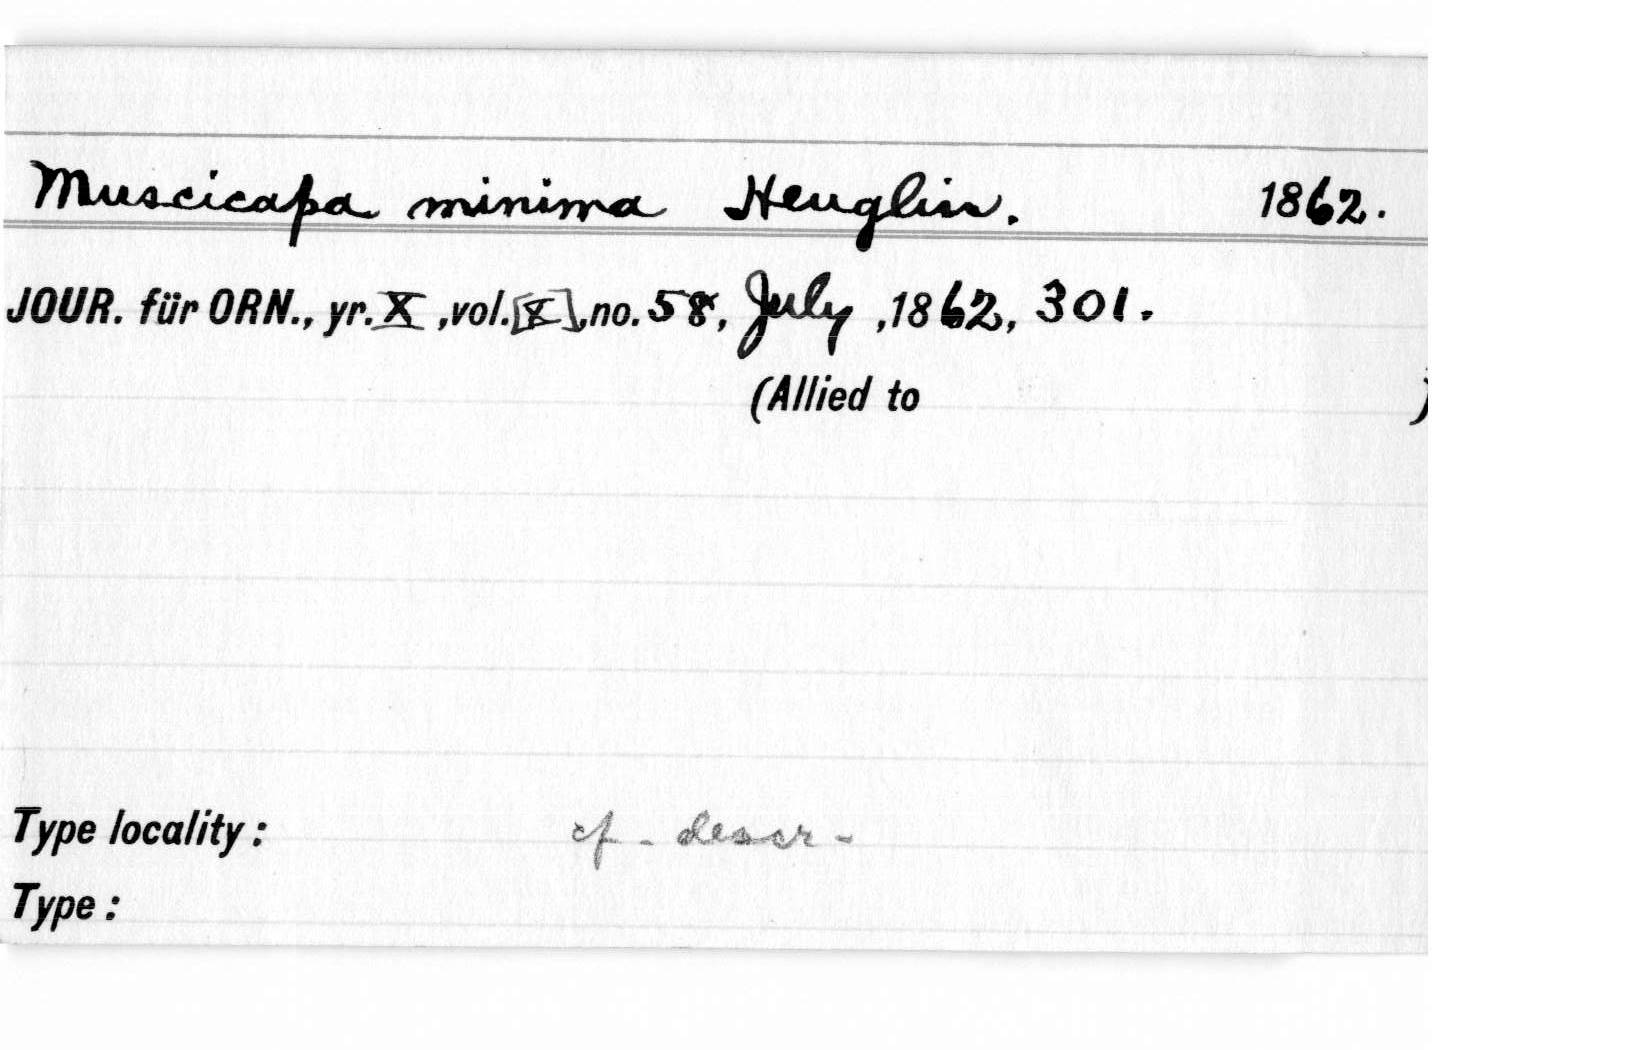 Muscicapa minima Heuglin. 1862.
JOUR. für ORN., yr. X, vol. [X], no. 58, July, 1862, 301.
(Allied to )
Type locality: cf. descr.
Type: